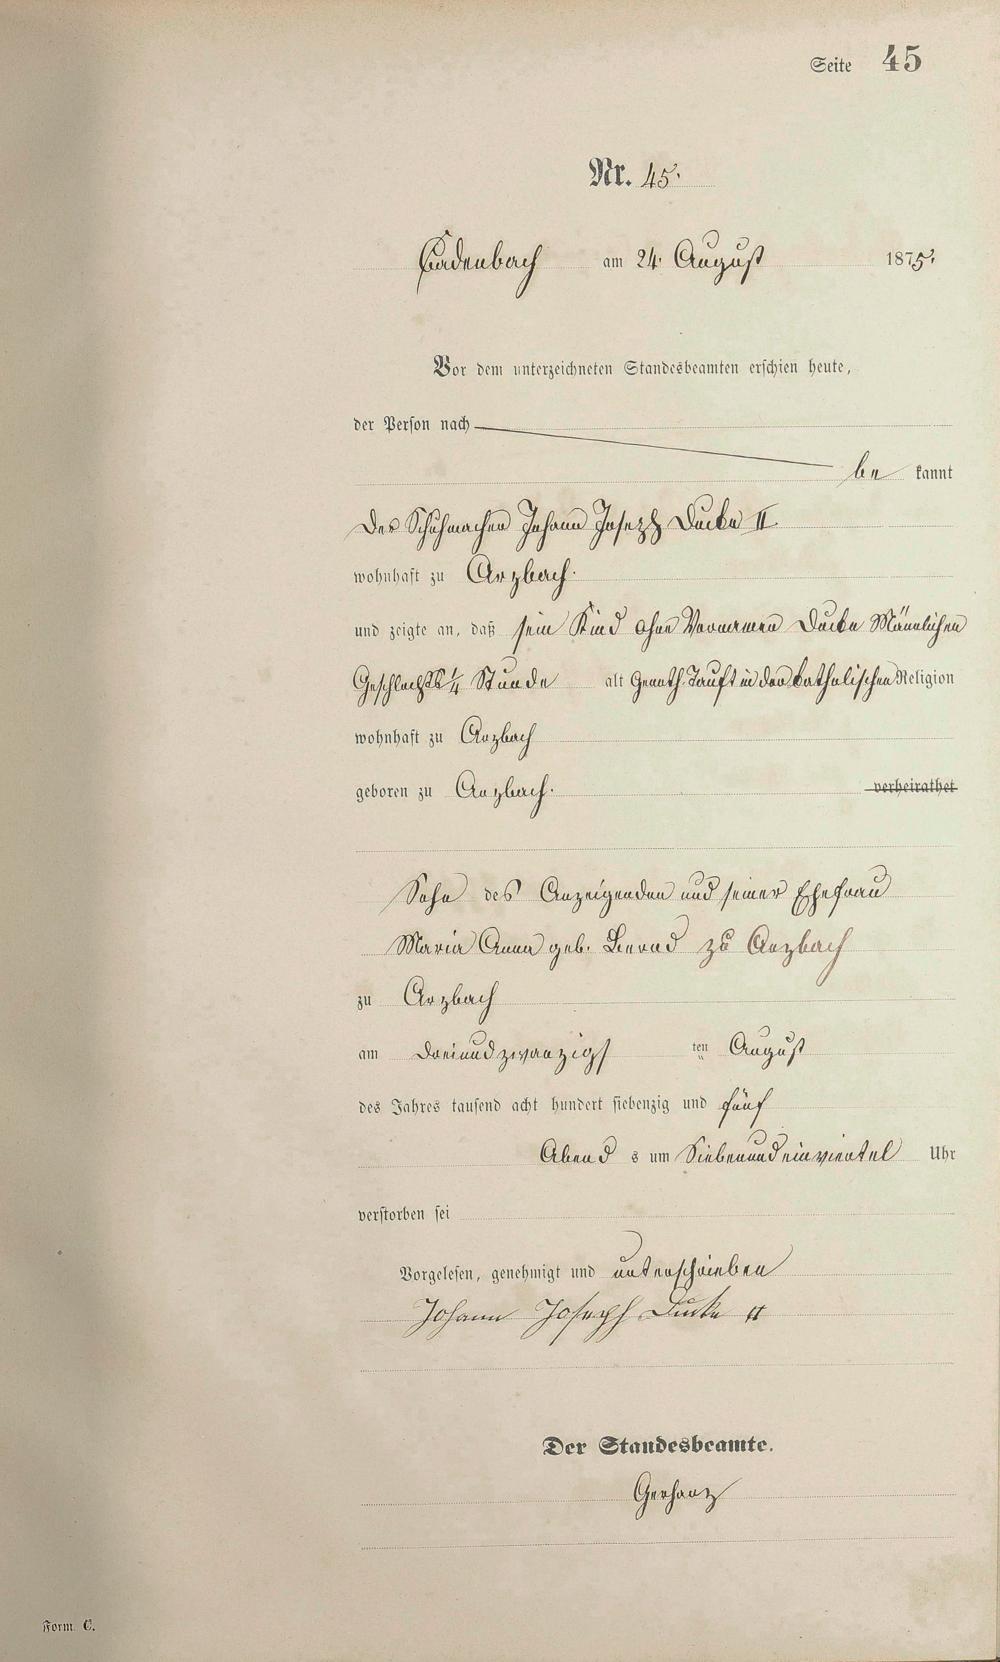 Seite 45
Nr. 45.
Cadenbach am 24. August 1875.
Vor dem unterzeichneten Standesbeamten erschien heute,
der Person nach
be kannt
Der Schuhmacher Johann Joseph Ducke II
wohnhaft zu Arzbach.
und zeigte an, daß sein Kind ohne Vornamen Ducke Männlichen
Geschlechts 1/4 Stunde alt Genoth. Tauft in der katholischen Religion
wohnhaft zu Arzbach
geboren zu Arzbach. verheirathet
Sohn des Anzeigenden und seiner Ehefrau
Maria Anna geb. Bernd zu Arzbach
zu Arzbach
am dreiundzwanzigs ten August
des Jahres tausend acht hundert siebenzig und fünf
Abend s um Siebenundeinviertel Uhr
verstorben sei
Vorgelesen, genehmigt und unterschrieben
Johann Joseph Ducke II
Der Standesbeamte.
Gerharz
Form C.